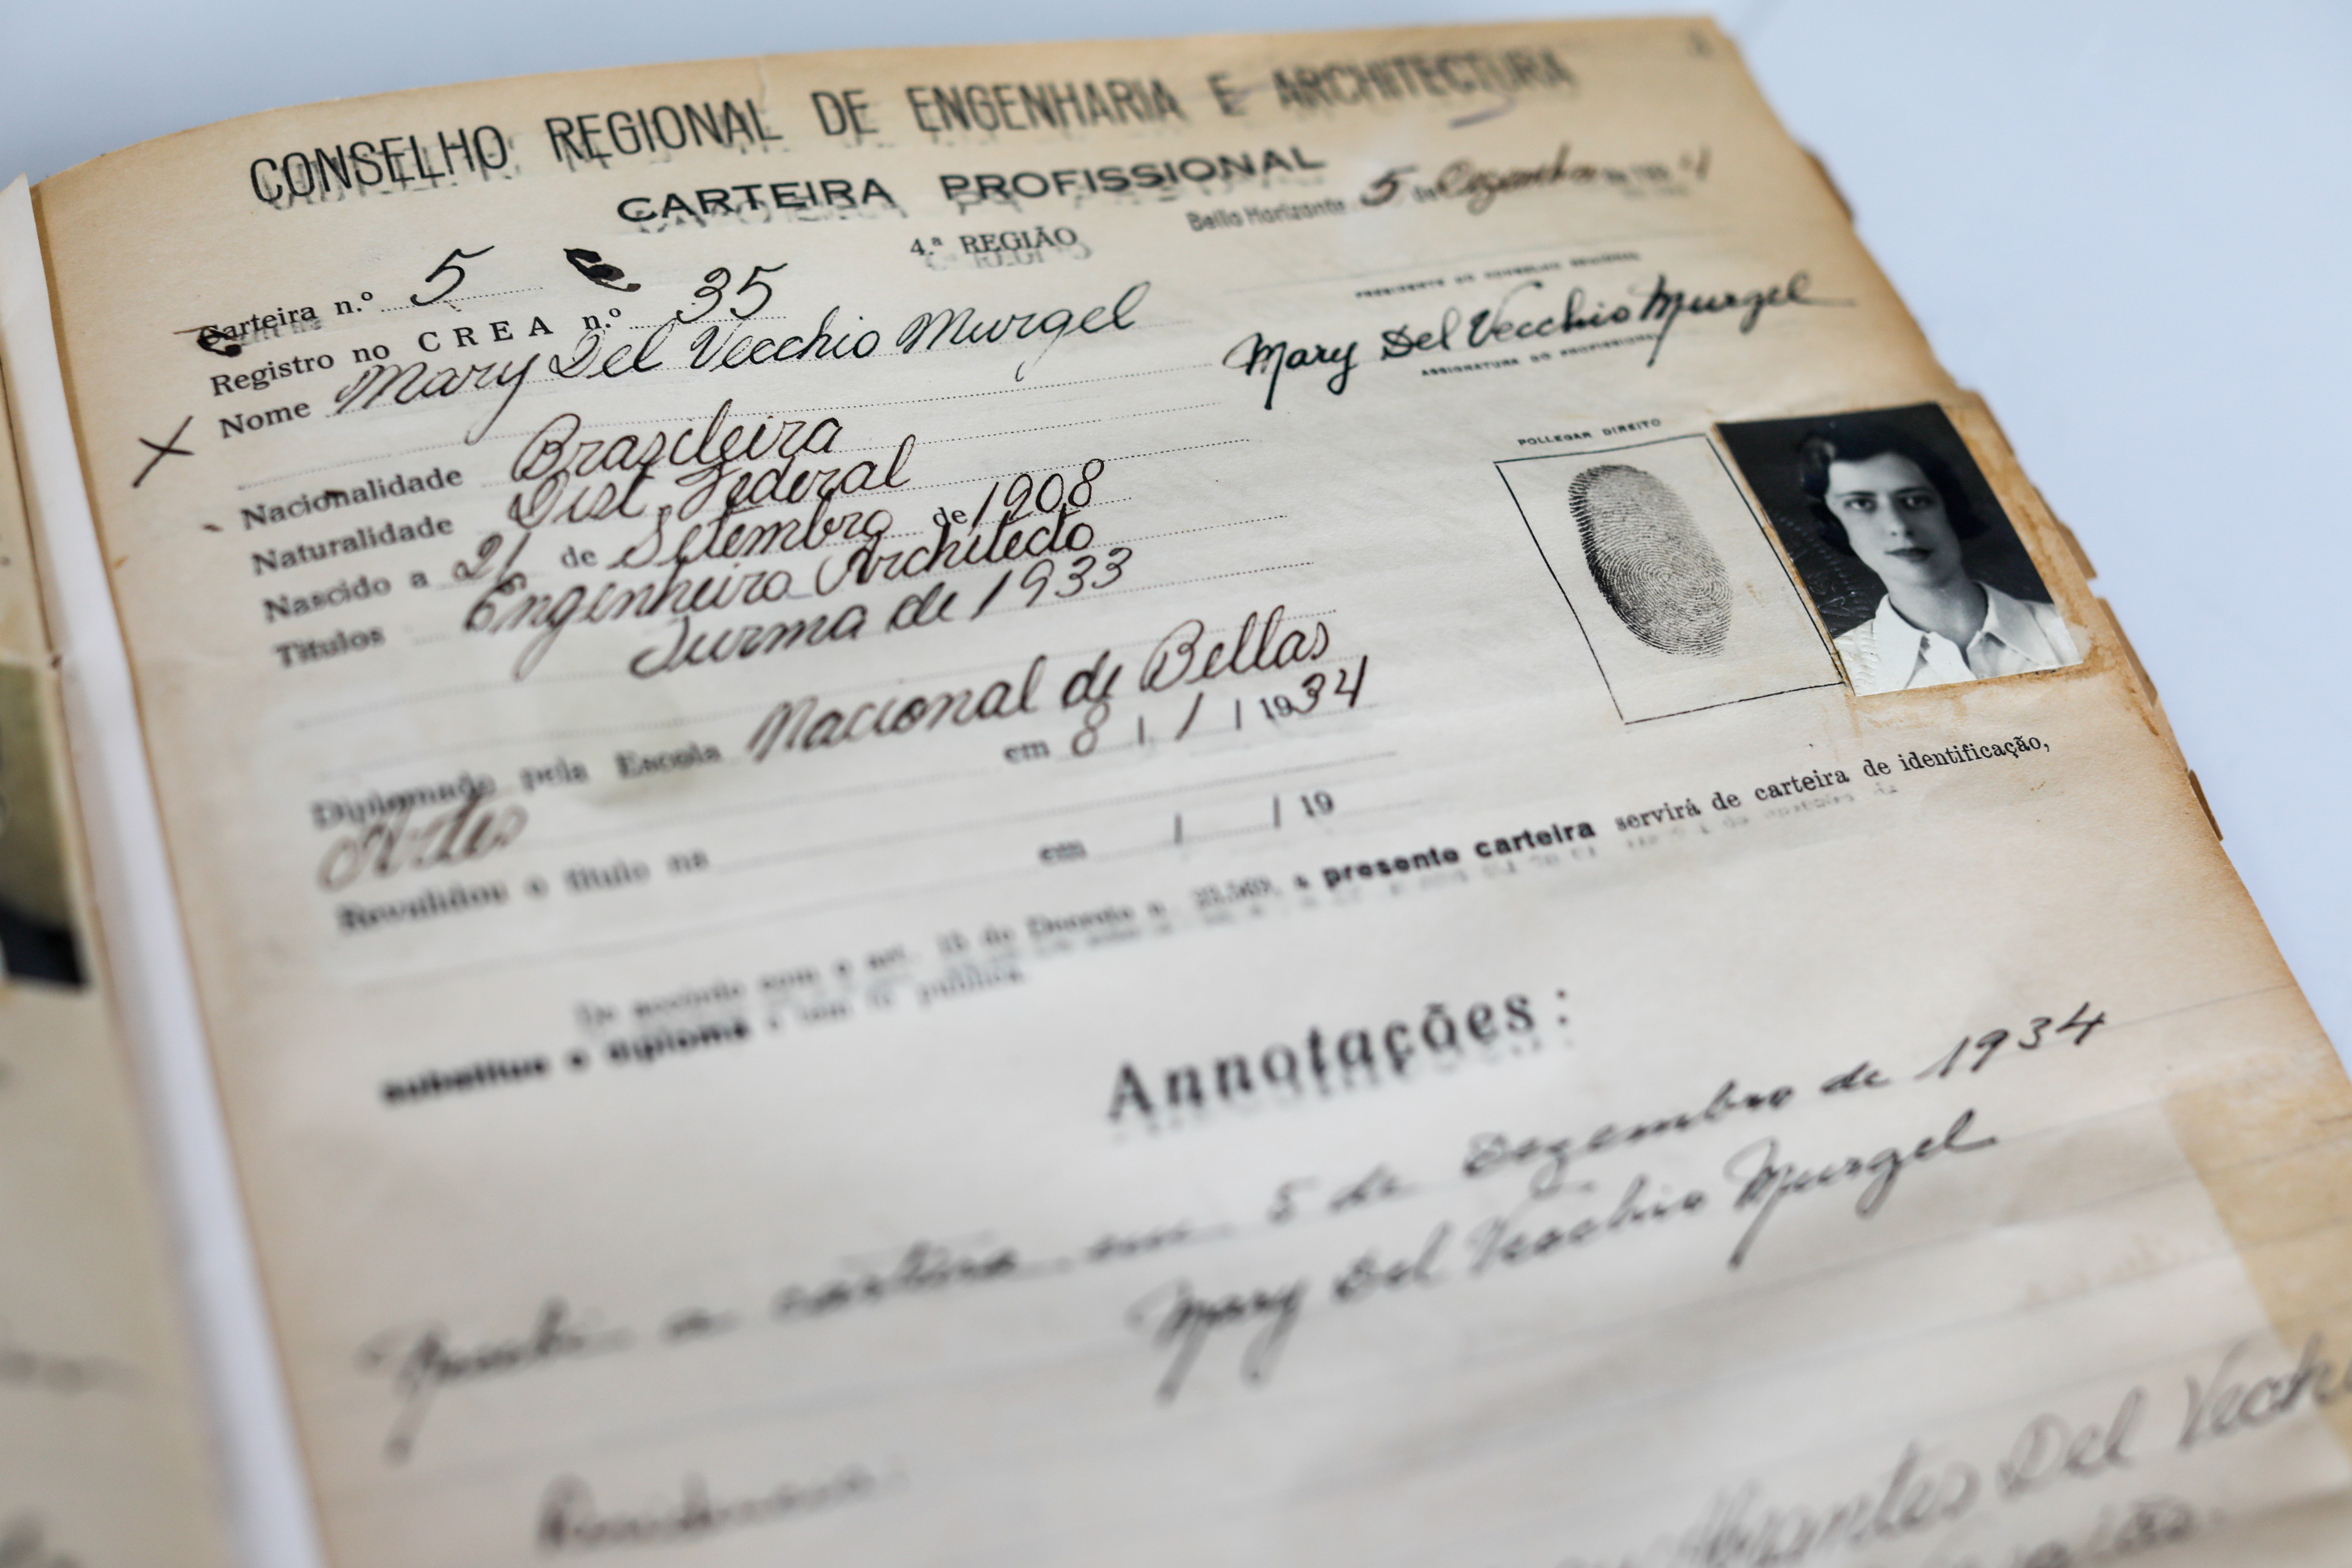 CONSELHO REGIONAL DE ENGENHARIA E ARCHITECTURA
CARTEIRA PROFISSIONAL
4.ª REGIÃO
Bello Horizonte 5 de Dezembro de
Carteira n.º 5
Registro no CREA n.º 35
Nome Mary Del Vecchio Murgel
PRESIDENTE DO CONSELHO REGIONAL
Mary Del Vecchio Murgel
ASSIGNATURA DO PROFISSIONAL
Nacionalidade Brasileira
Naturalidade Dist. Federal
Nascido a 21 de Setembro de 1908
Titulos Engenheiro Architecto
Turma de 1933
POLLEGAR DIREITO
Diplomado pela Escola Nacional de Bellas
Artes em 8 / 1 / 1934
Revalidou o titulo na em / / 19
De accordo com o art. 15 do Decreto n. 23.569, a presente carteira servirá de carteira de identificação,
substitue o diploma e tem fé publica.
Annotações:
a carteira em 5 de Dezembro de 1934
Mary Del Vecchio Murgel
Residencia:
Abrantes Del Vecchi